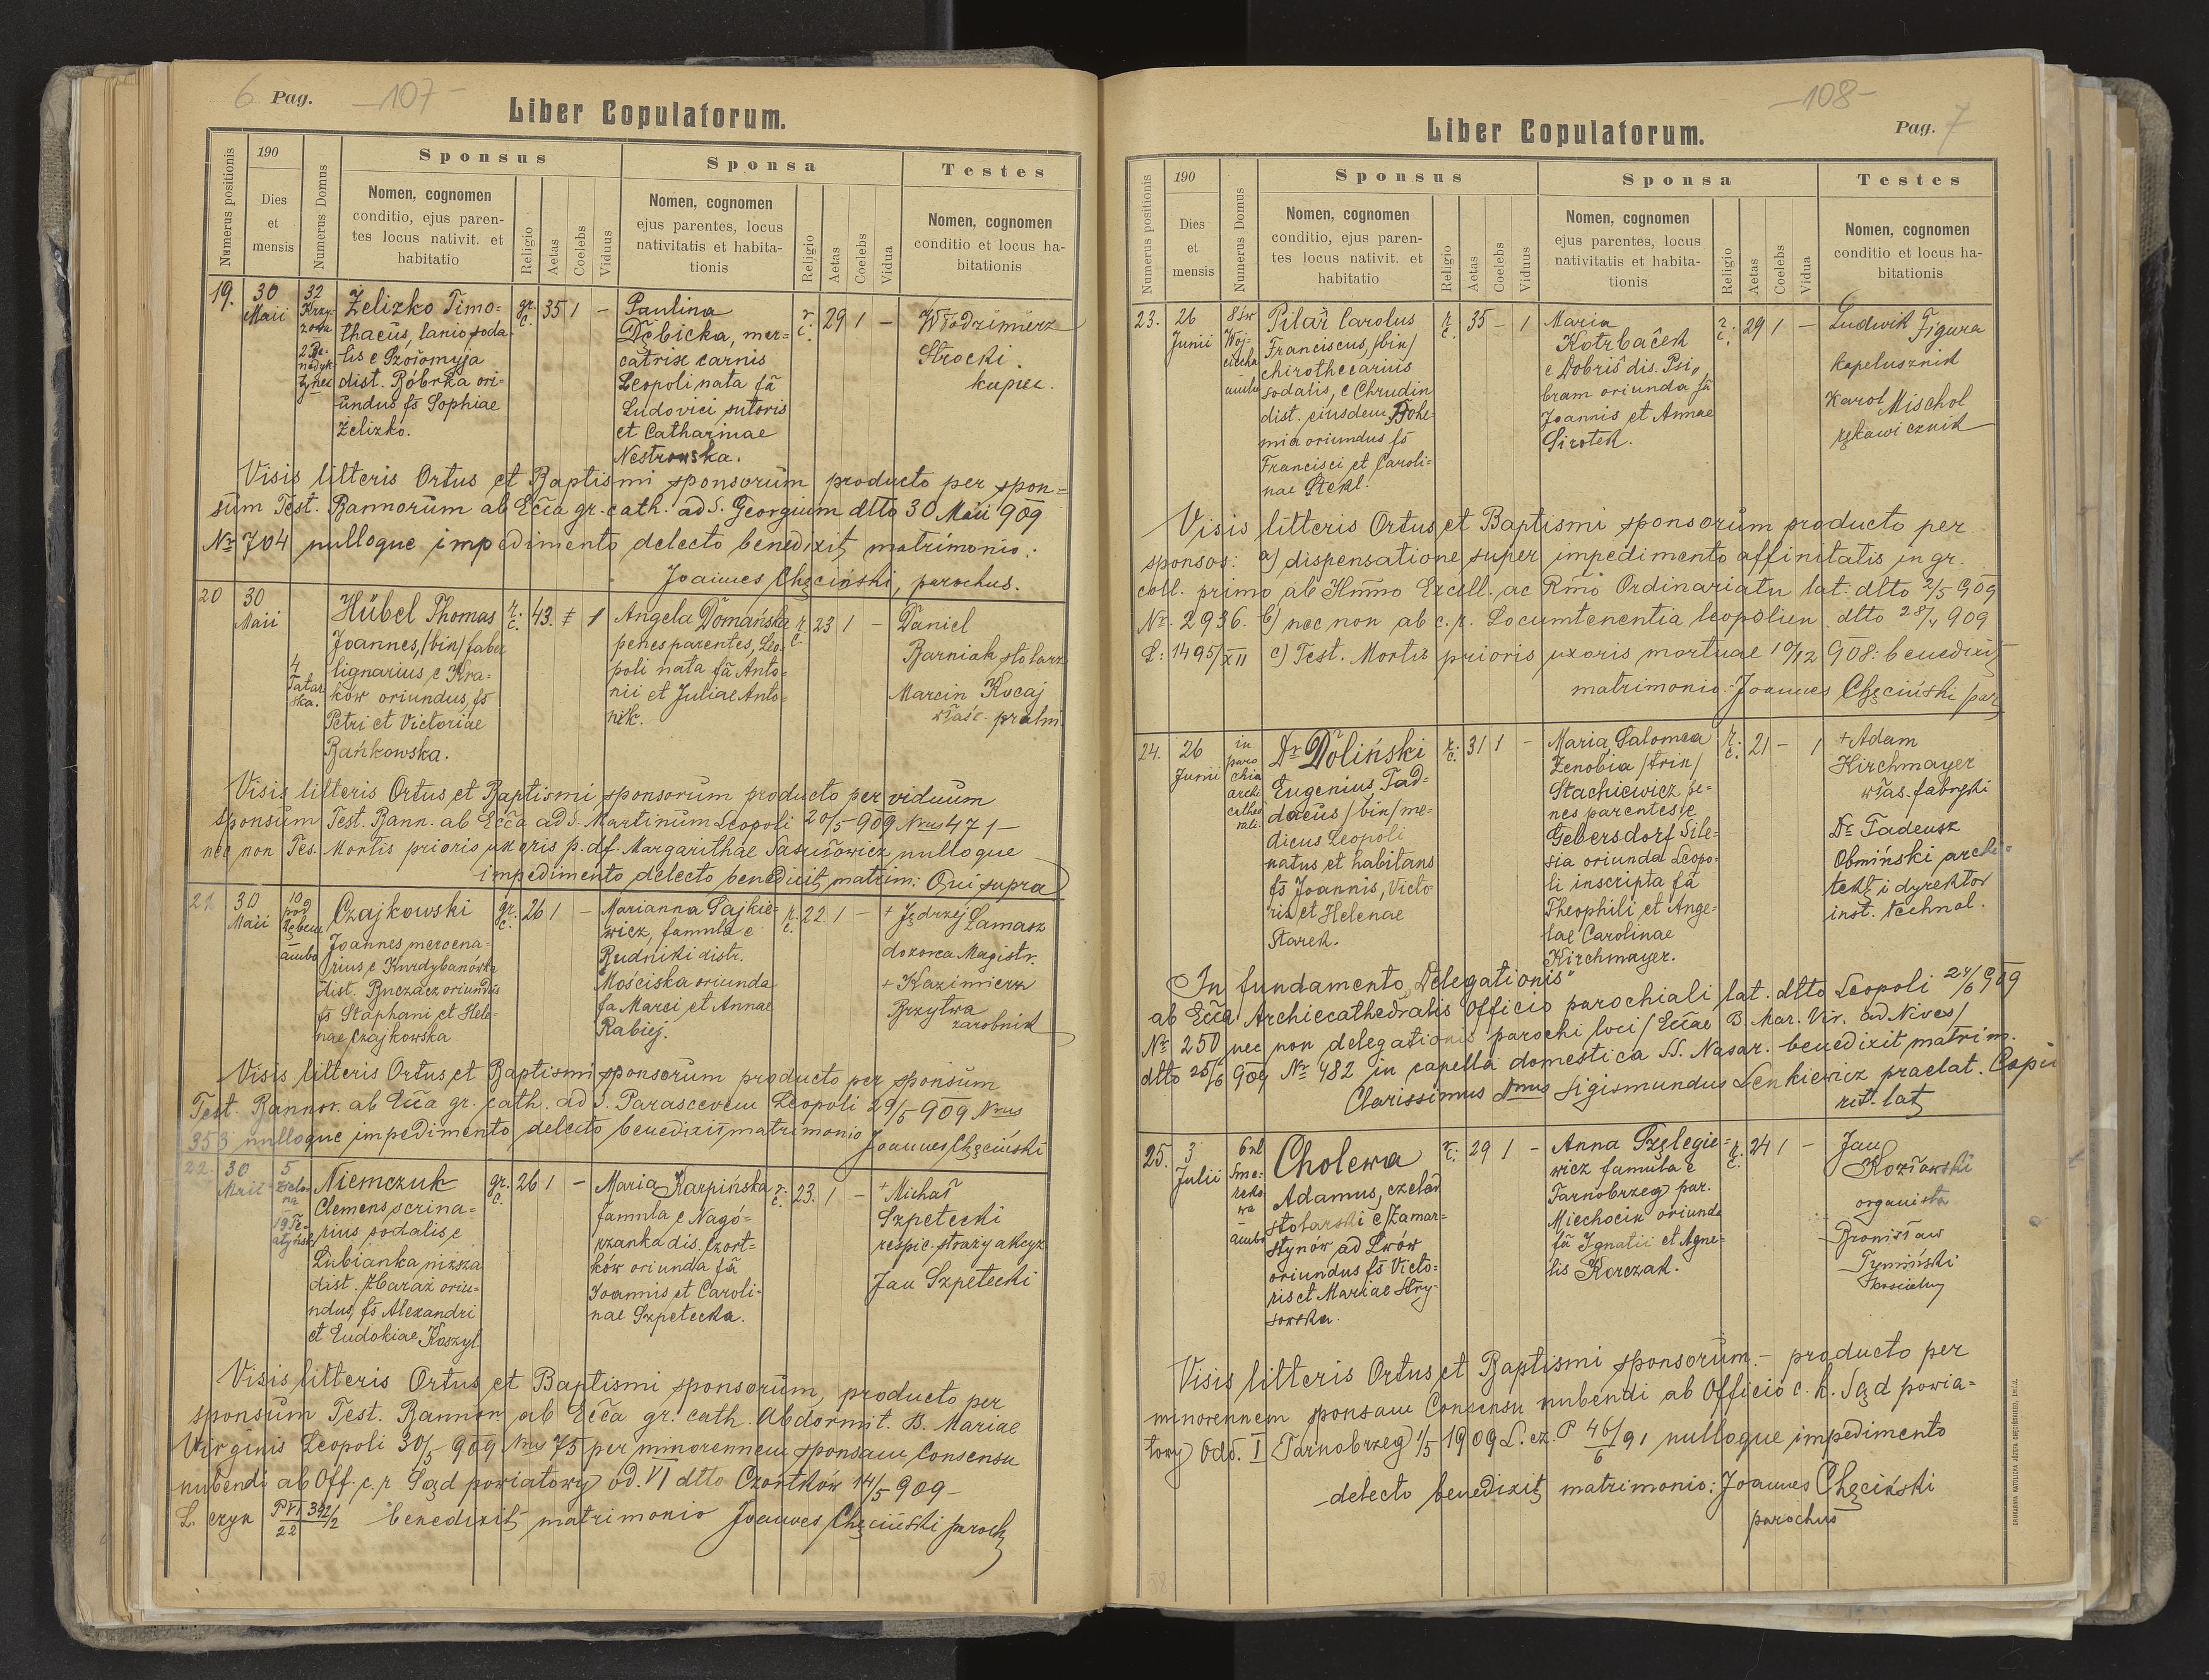 6 Pag. -107-
Liber Copulatorum.
Numerus positionis
190
Dies
et
mensis
Numerus Domus
Sponsus
Nomen, cognomen
conditio, ejus paren-
tes locus nativit. et
habitatio
Religio
Aetas
Coelebs
Viduus
Sponsa
Nomen, cognomen
ejus parentes, locus
nativitatis et habita-
tionis
Religio
Aetas
Coelebs
Vidua
Testes
Nomen, cognomen
conditio et locus ha-
bitationis
19.
30
Maii
32
Krzy-
żowa
2 Be-
nedyk-
tynec
Żelizko Timo=
thaeus, lanio soda-
lis e
dist. Bóbrka ori=
undus fs Sophiae
Żelizko.
gr.
c.
35
1
–
Paulina
Dębicka, mer=
catrix carnis
Leopoli nata fa
Ludovici sutoris
et Catharinae
Nestrowska.
r.
c.
29
1
–
Włodzimierz
Strocki
kupiec.
Visis litteris Ortus et Baptismi sponsorum producto per spon=
sum Test. Bannorum ab Ecca gr. cath. ad S. Georgium dtto 30 Maii 909
Nr 704 nulloque impedimento detecto benedixit matrimonio:
Joannes Chęciński, parochus.
20
30
Maii
4
Tatar-
ska.
Hübel Thomas
Joannes, /bin/ faber
lignarius e Kra=
ków oriundus, fs
Petri et Victoriae
Bańkowska.
r.
c.
43.
1
Angela Domańska
penes parentes, Leo-
poli nata fa Anto=
nii et Juliae Anto=
nik.
r.
c.
23
1
–
Daniel
Barniak stolarz
Marcin Kocaj
właśc. pralni
Visis litteris Ortus et Baptismi sponsorum producto per viduum
sponsum Test. Bann. ab Ecca ad S. Martinum Leopoli 20/5 909 Nrus 471 –
nec non Tes. Mortis prioris uxoris p. df. Margarithae nulloque
impedimento detecto benedixit matrim: Qui supra
21.
30
Maii
10
pod
Dębem
ambo
Czajkowski
Joannes mercena=
rius e Kurdybanówka
dist. Buczacz oriundus
fs Staphani et Hele=
nae Czajkowska
gr.
c.
26
1
–
Marianna Sajkie=
wicz, famula e
Rudniki distr.
Mościska oriunda
fa Marci et Annae
Rabiej.
r.
c.
22.
1
–
+ Jędrzej Łamasz
dozorca Magistr.
+ Kazimierz
Brzytwa
zarobnik
Visis litteris Ortus et Baptismi sponsorum producto per sponsum
Test. Bannor. ab Ecca gr. cath. ad S. Parascevem Leopoli 29/5 909 Nrus
353 nulloque impedimento detecto benedixit matrimonio Joannes Chęciński
22.
30
Maii
5
Zielo-
na
19 Te-
atyńsk
Niemczuk
Clemens scrina=
rius sodalis e
Lubianka niższa
dist. Zbaraż oriu=
ndus, fs Alexandri
et Eudokiae Koszyl.
gr.
c.
26
1
–
Maria Karpińska
famula e Nagó=
rzanka dis. Czort=
ków oriunda fa
Joannis et Caroli-
nae Szpetecka.
r.
c.
23.
1
–
+ Michał
Szpetecki
respic. straży akcyz
Jan Szpetecki
Visis litteris Ortus et Baptismi sponsorum, producto per
sponsum Test. Bannor. ab Ecca gr. cath. Abdormit. B. Mariae
Virginis Leopoli 30/5 909 Nrus 75 per minorennem sponsam Consensu
nubendi ab Off. c. r Sąd powiatowy od. VI dtto Czortków 14/5 909 –
L. czyn P VI 392/2 22 benedixit matrimonio Joannes Chęciński paroch
-108-
Pag. 7
Liber Copulatorum.
Numerus positionis
190
Dies
et
mensis
Numerus Domus
Sponsus
Nomen, cognomen
conditio, ejus paren-
tes locus nativit. et
habitatio
Religio
Aetas
Coelebs
Viduus
Sponsa
Nomen, cognomen
ejus parentes, locus
nativitatis et habita-
tionis
Religio
Aetas
Coelebs
Vidua
Testes
Nomen, cognomen
conditio et locus ha-
bitationis
23.
26
Junii
8 św
Woj-
ciecha
ambo
Pilař Carolus
Franciscus, /bin/
chirothecarius
sodalis, e Chrudin
dist. eiusdem, Bohe-
mia oriundus fs
Francisci et Caroli=
nae Stekl.
r.
c.
35
–
1
Maria
Kotrbaček
e Dobriš dis. Psi
bram oriunda fa
Joannis et Annae
Sirotek.
r.
c.
29
1
–
Ludwik Figura
kapelusznik
Karol Mischol
rękawicznik
Visis litteris Ortus et Baptismi sponsorum producto per
sponsos: a) dispensatione super impedimento affinitatis in gr.
coll. primo ab Illmo Excell. ac Rmo Ordinariatu lat. dtto 2/5 909
Nr. 2936. b) nec non ab c. r. Locumtenentia leopolien dtto 28/4 909
L: 1495/XII c) Test. Mortis prioris uxoris mortuae 10/12 908: benedixit
matrimonio: Joannes Chęciński par
24.
26
Junii
in
paro
chia
archi
cathed
rali
Dr Doliński
Eugenius, Tad=
daeus /bin/ me=
dicus Leopoli
natus et habitans
fs Joannis, Victo
ris et Helenae
Starek.
r.
c.
31
1
–
Maria Salomea
Zenobia /trin/
Stachiewicz pe=
nes parentes e
Gebersdorf Sile=
sia oriunda Leopo=
li inscripta fa
Theophili et Ange=
lae Carolinae
Kirchmayer.
r.
c.
21
–
1
+ Adam
Kirchmayer
włas. fabryki
Dr Tadeusz
Obmiński archi=
tekt i dyrektor
inst. technol.
In fundamento „Delegationis"
ab Ecca Archicathedralis Officio parochiali lat. dtto Leopoli 24/6 909
Nr 250 nec non delegationis parochi loci /Eccae B. Mar. Vir. ad Nives/
dtto 25/6 909 Nr 482 in capella domestica SS. Nasar. benedixit matrim.
Clarissimus Dmus Sigismundus Lenkiewicz praelat. Capit
rit. lat
25.
3
Julii
6 ul
Sme-
reko-
wa
ambo
Cholewa
Adamus, czelad
stolarski e Zamar=
stynów ad Lwów
oriundus fs Victo=
ris et Mariae Stry-
sowska.
r.
c.
29
1
–
Anna Przelegie=
wicz famula e
Tarnobrzeg par.
Miechocin oriunda
fa Ignatii et Agne=
tis Korczak.
r.
c.
24
1
–
Jan
Kozłowski
organista
Bronisław
Tymiński
kościelny
Visis litteris Ortus et Baptismi sponsorum. – producto per
minorennem sponsam Consensu nubendi ab Officio c. k. Sąd powia=
towy Odd. I Tarnobrzeg 1/5 1909 L. cz. P 46/6 91 nulloque impedimento
– detecto benedixit matrimonio: Joannes Chęciński
parochus